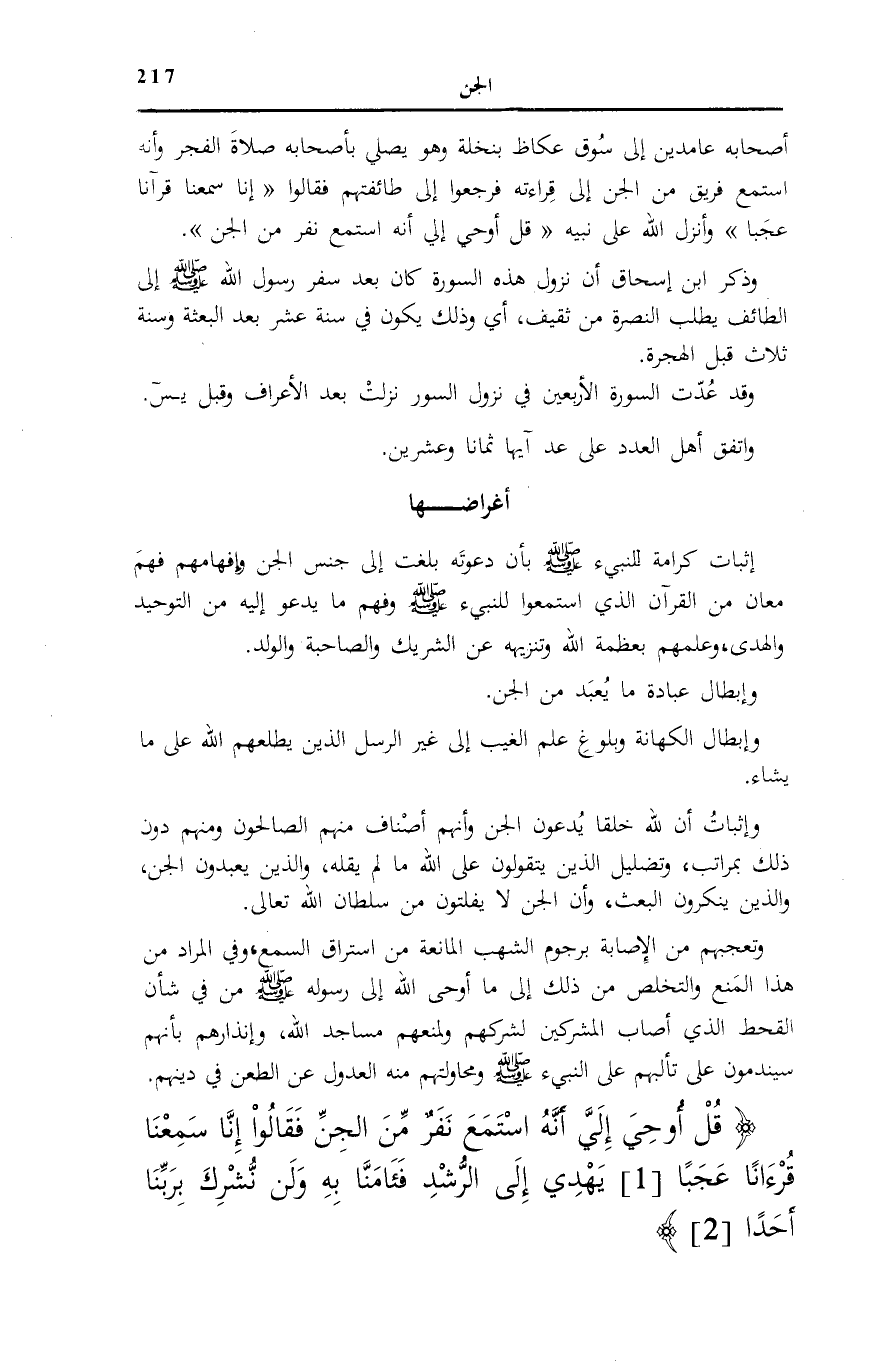 217
الجن
أصحابه عامدين إلى سُوق عكاظ بنخلة وهو يصلي بأصحابه صلاةَ الفجر وأنه
استمع فريق من الجن إلى قِراءته فرجعوا إلى طائفتهم فقالوا « إنا سمعنا قرآنا
عجَبا » وأنزل الله على نبيه « قل أوحي إلي أنه استمع نفر من الجن ».
وذكر ابن إسحاق أن نزول هذه السورة كان بعد سفر رسول الله ﷺ إلى
الطائف يطلب النصرة من ثقيف، أي وذلك يكون في سنة عشر بعد البعثة وسنة
ثلاث قبل الهجرة.
وقد عُدّت السورة الأربعين في نزول السور نزلتْ بعد الأعراف وقبل يـسٓ.
واتفق أهل العدد على عد آيها ثمانا وعشرين.
أغراضـــها
إثبات كرامة للنبيء ﷺ بأن دعوتَه بلغت إلى جنس الجن وإفهامهم فهمَ
معان من القرآن الذي استمعوا للنبيء ﷺ وفهم ما يدعو إليه من التوحيد
والهدى، وعلمهم بعظمة الله وتنزيهه عن الشريك والصاحبة والولد.
وإبطال عبادة ما يُعبَد من الجن.
وإبطال الكهانة وبلوغِ علم الغيب إلى غير الرسل الذين يطلعهم الله على ما
يشاء.
وإثباتُ أن لله خلقا يُدعون الجن وأنهم أصْناف منهم الصالحون ومنهم دون
ذلك بمراتب، وتضليل الذين يتقولون على الله ما لم يقله، والذين يعبدون الجن،
والذين ينكرون البعث، وأن الجن لا يفلتون من سلطان الله تعالى.
وتعجبهم من الإصابة برجوم الشهب المانعة من استراق السمع، وفي المراد من
هذا المَنع والتخلص من ذلك إلى ما أوحى الله إلى رسوله ﷺ من في شأن
القحط الذي أصاب المشركين لشركهم ولمنعهم مساجد الله، وإنذارهم بأنهم
سيندمون على تألبهم على النبيء ﷺ ومحاولتهم منه العدول عن الطعن في دينهم.
﴿ قُلْ أُوحِيَ إِلَيَّ أَنَّهُ اسْتَمَعَ نَفَرٌ مِّنَ الجِنِّ فَقَالُواْ إِنَّا سَمِعْنَا
قُرْءَانًا عَجَبًا [1] يَهْدِي إِلَى الرُّشْدِ فَئَامَنَّا بِهِ وَلَن نُّشْرِكَ بِرَبِّنَا
أَحَدًا [2] ﴾